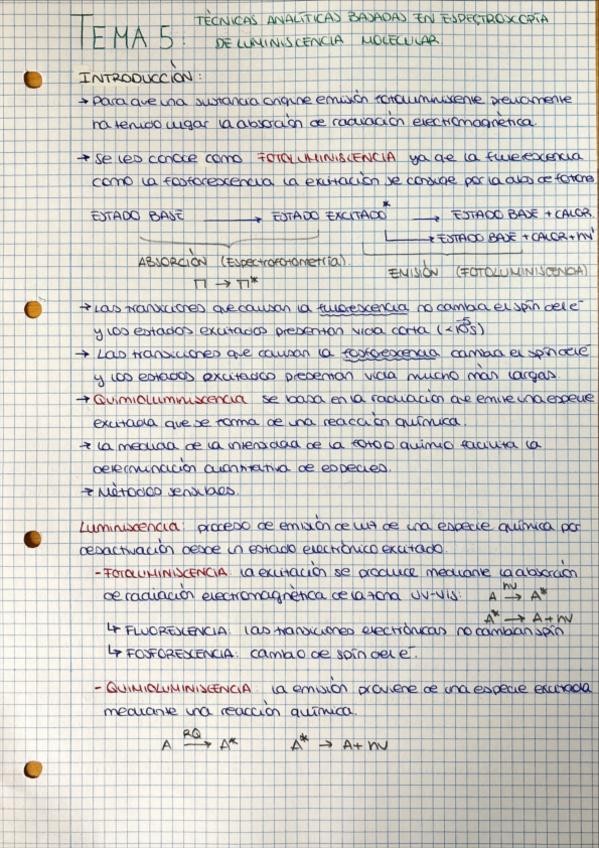 TEMA 5: TÉCNICAS ANALÍTICAS BASADAS EN ESPECTROSCOPÍA
DE LUMINISCENCIA MOLECULAR
INTRODUCCIÓN:
→ Para que una sustancia origine emisión fotoluminiscente previamente
ha tenido lugar la absorción de radiación electromagnética.
→ Se les conoce como FOTOLUMINISCENCIA ya qe la fluorescencia
como la fosforescencia la excitación se consigue por la abs de fotones
ESTADO BASE → ESTADO EXCITADO* → ESTADO BASE + CALOR
→ ESTADO BASE + CALOR + hν'
ABSORCIÓN (Espectrofotometría)
EMISIÓN (FOTOLUMINISCENCIA)
Π → Π*
→ Las transiciones que causan la fluorescencia no cambia el spin del e⁻
y los estados excitados presentan vida corta (<10⁻⁵s)
→ Las transiciones que causan la fosforescencia cambia el spin del e⁻
y los estados excitados presentan vida mucho más largas.
→ Quimioluminiscencia se basa en la radiación que emite una especie
excitada que se forma de una reacción química.
→ La medida de la intensidad de la foto o quimio facilita la
determinación cuantitativa de especies.
→ Métodos sensibles.
Luminiscencia: proceso de emisión de luz de una especie química por
desactivación desde un estado electrónico excitado.
- FOTOLUMINISCENCIA: la excitación se produce mediante la absorción
de radiación electromagnética de la zona UV-VIS: A hν→ A*
A* → A + hν
↳ FLUORESCENCIA: las transiciones electrónicas no cambian spin
↳ FOSFORESCENCIA: cambio de spin del e⁻.
- QUIMIOLUMINISCENCIA: la emisión proviene de una especie excitada
mediante una reacción química.
A RQ→ A* A* → A + hν